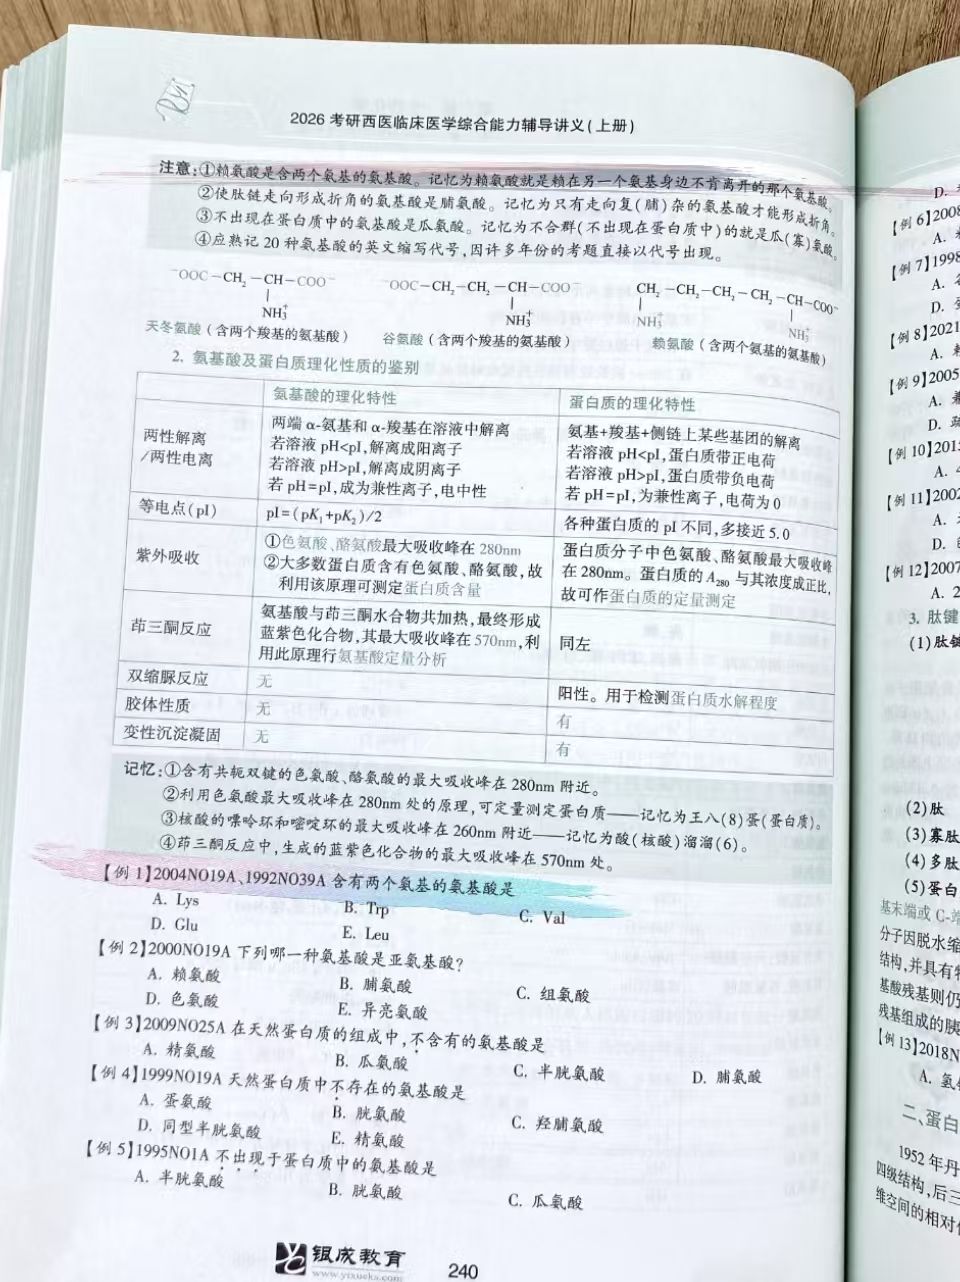 2026 考研西医临床医学综合能力辅导讲义(上册)
注意:①赖氨酸是含两个氨基的氨基酸。记忆为赖氨酸就是赖在另一个氨基身边不肯离开的那个氨基酸。
②使肽链走向形成折角的氨基酸是脯氨酸。记忆为只有走向复(脯)杂的氨基酸才能形成折角。
③不出现在蛋白质中的氨基酸是瓜氨酸。记忆为不合群(不出现在蛋白质中)的就是瓜(寡)氨酸。
④应熟记 20 种氨基酸的英文缩写代号,因许多年份的考题直接以代号出现。
⁻OOC－CH₂－CH－COO⁻ ⁻OOC－CH₂－CH₂－CH－COO⁻ CH₂－CH₂－CH₂－CH₂－CH－COO⁻
NH₃⁺ NH₃⁺ NH₃⁺ NH₃⁺
天冬氨酸(含两个羧基的氨基酸) 谷氨酸(含两个羧基的氨基酸) 赖氨酸(含两个氨基的氨基酸)
2. 氨基酸及蛋白质理化性质的鉴别
氨基酸的理化特性 蛋白质的理化特性
两性解离
/两性电离
两端 α-氨基和 α-羧基在溶液中解离
若溶液 pH<pI,解离成阳离子
若溶液 pH>pI,解离成阴离子
若 pH=pI,成为兼性离子,电中性
氨基+羧基+侧链上某些基团的解离
若溶液 pH<pI,蛋白质带正电荷
若溶液 pH>pI,蛋白质带负电荷
若 pH=pI,为兼性离子,电荷为 0
等电点(pI) pI=(pK₁+pK₂)/2 各种蛋白质的 pI 不同,多接近 5.0
紫外吸收
①色氨酸、酪氨酸最大吸收峰在 280nm
②大多数蛋白质含有色氨酸、酪氨酸,故
利用该原理可测定蛋白质含量
蛋白质分子中色氨酸、酪氨酸最大吸收峰
在 280nm。蛋白质的 A₂₈₀ 与其浓度成正比,
故可作蛋白质的定量测定
茚三酮反应
氨基酸与茚三酮水合物共加热,最终形成
蓝紫色化合物,其最大吸收峰在 570nm,利
用此原理行氨基酸定量分析
同左
双缩脲反应 无 阳性。用于检测蛋白质水解程度
胶体性质 无 有
变性沉淀凝固 无 有
记忆:①含有共轭双键的色氨酸、酪氨酸的最大吸收峰在 280nm 附近。
②利用色氨酸最大吸收峰在 280nm 处的原理,可定量测定蛋白质——记忆为王八(8)蛋(蛋白质)。
③核酸的嘌呤环和嘧啶环的最大吸收峰在 260nm 附近——记忆为酸(核酸)溜溜(6)。
④茚三酮反应中,生成的蓝紫色化合物的最大吸收峰在 570nm 处。
【例 1】2004NO19A、1992NO39A 含有两个氨基的氨基酸是
A. Lys B. Trp C. Val
D. Glu E. Leu
【例 2】2000NO19A 下列哪一种氨基酸是亚氨基酸?
A. 赖氨酸 B. 脯氨酸 C. 组氨酸
D. 色氨酸 E. 异亮氨酸
【例 3】2009NO25A 在天然蛋白质的组成中,不含有的氨基酸是
A. 精氨酸 B. 瓜氨酸 C. 半胱氨酸 D. 脯氨酸
【例 4】1999NO19A 天然蛋白质中不存在的氨基酸是
A. 蛋氨酸 B. 胱氨酸 C. 羟脯氨酸
D. 同型半胱氨酸 E. 精氨酸
【例 5】1995NO1A 不出现于蛋白质中的氨基酸是
A. 半胱氨酸 B. 胱氨酸 C. 瓜氨酸
银成教育
www.yixueks.com
240
D.
【例 6】2008
A.
【例 7】1998
A.
D.
【例 8】2021
A.
【例 9】2005
A.
D.
【例 10】201
A.
【例 11】2002
A.
D.
【例 12】2007
A. 2
3. 肽键
(1)肽键
(2)肽
(3)寡肽
(4)多肽
(5)蛋白
基末端或 C-端
分子因脱水缩
结构,并具有特
基酸残基则仍
残基组成的胰
【例 13】2018N
A. 氢
二、蛋白
1952 年丹
四级结构,后三
维空间的相对位